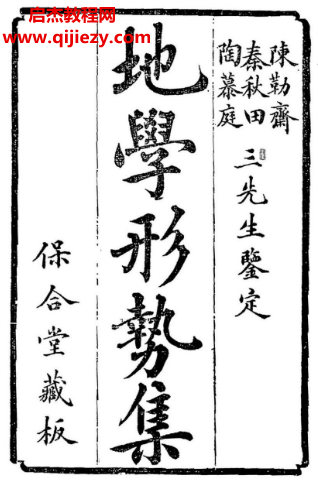 启杰教程网
www.qijiezy.com
陳勒齋
秦秋田
陶慕庭
三先生鑒定
地學形勢集
保合堂藏板